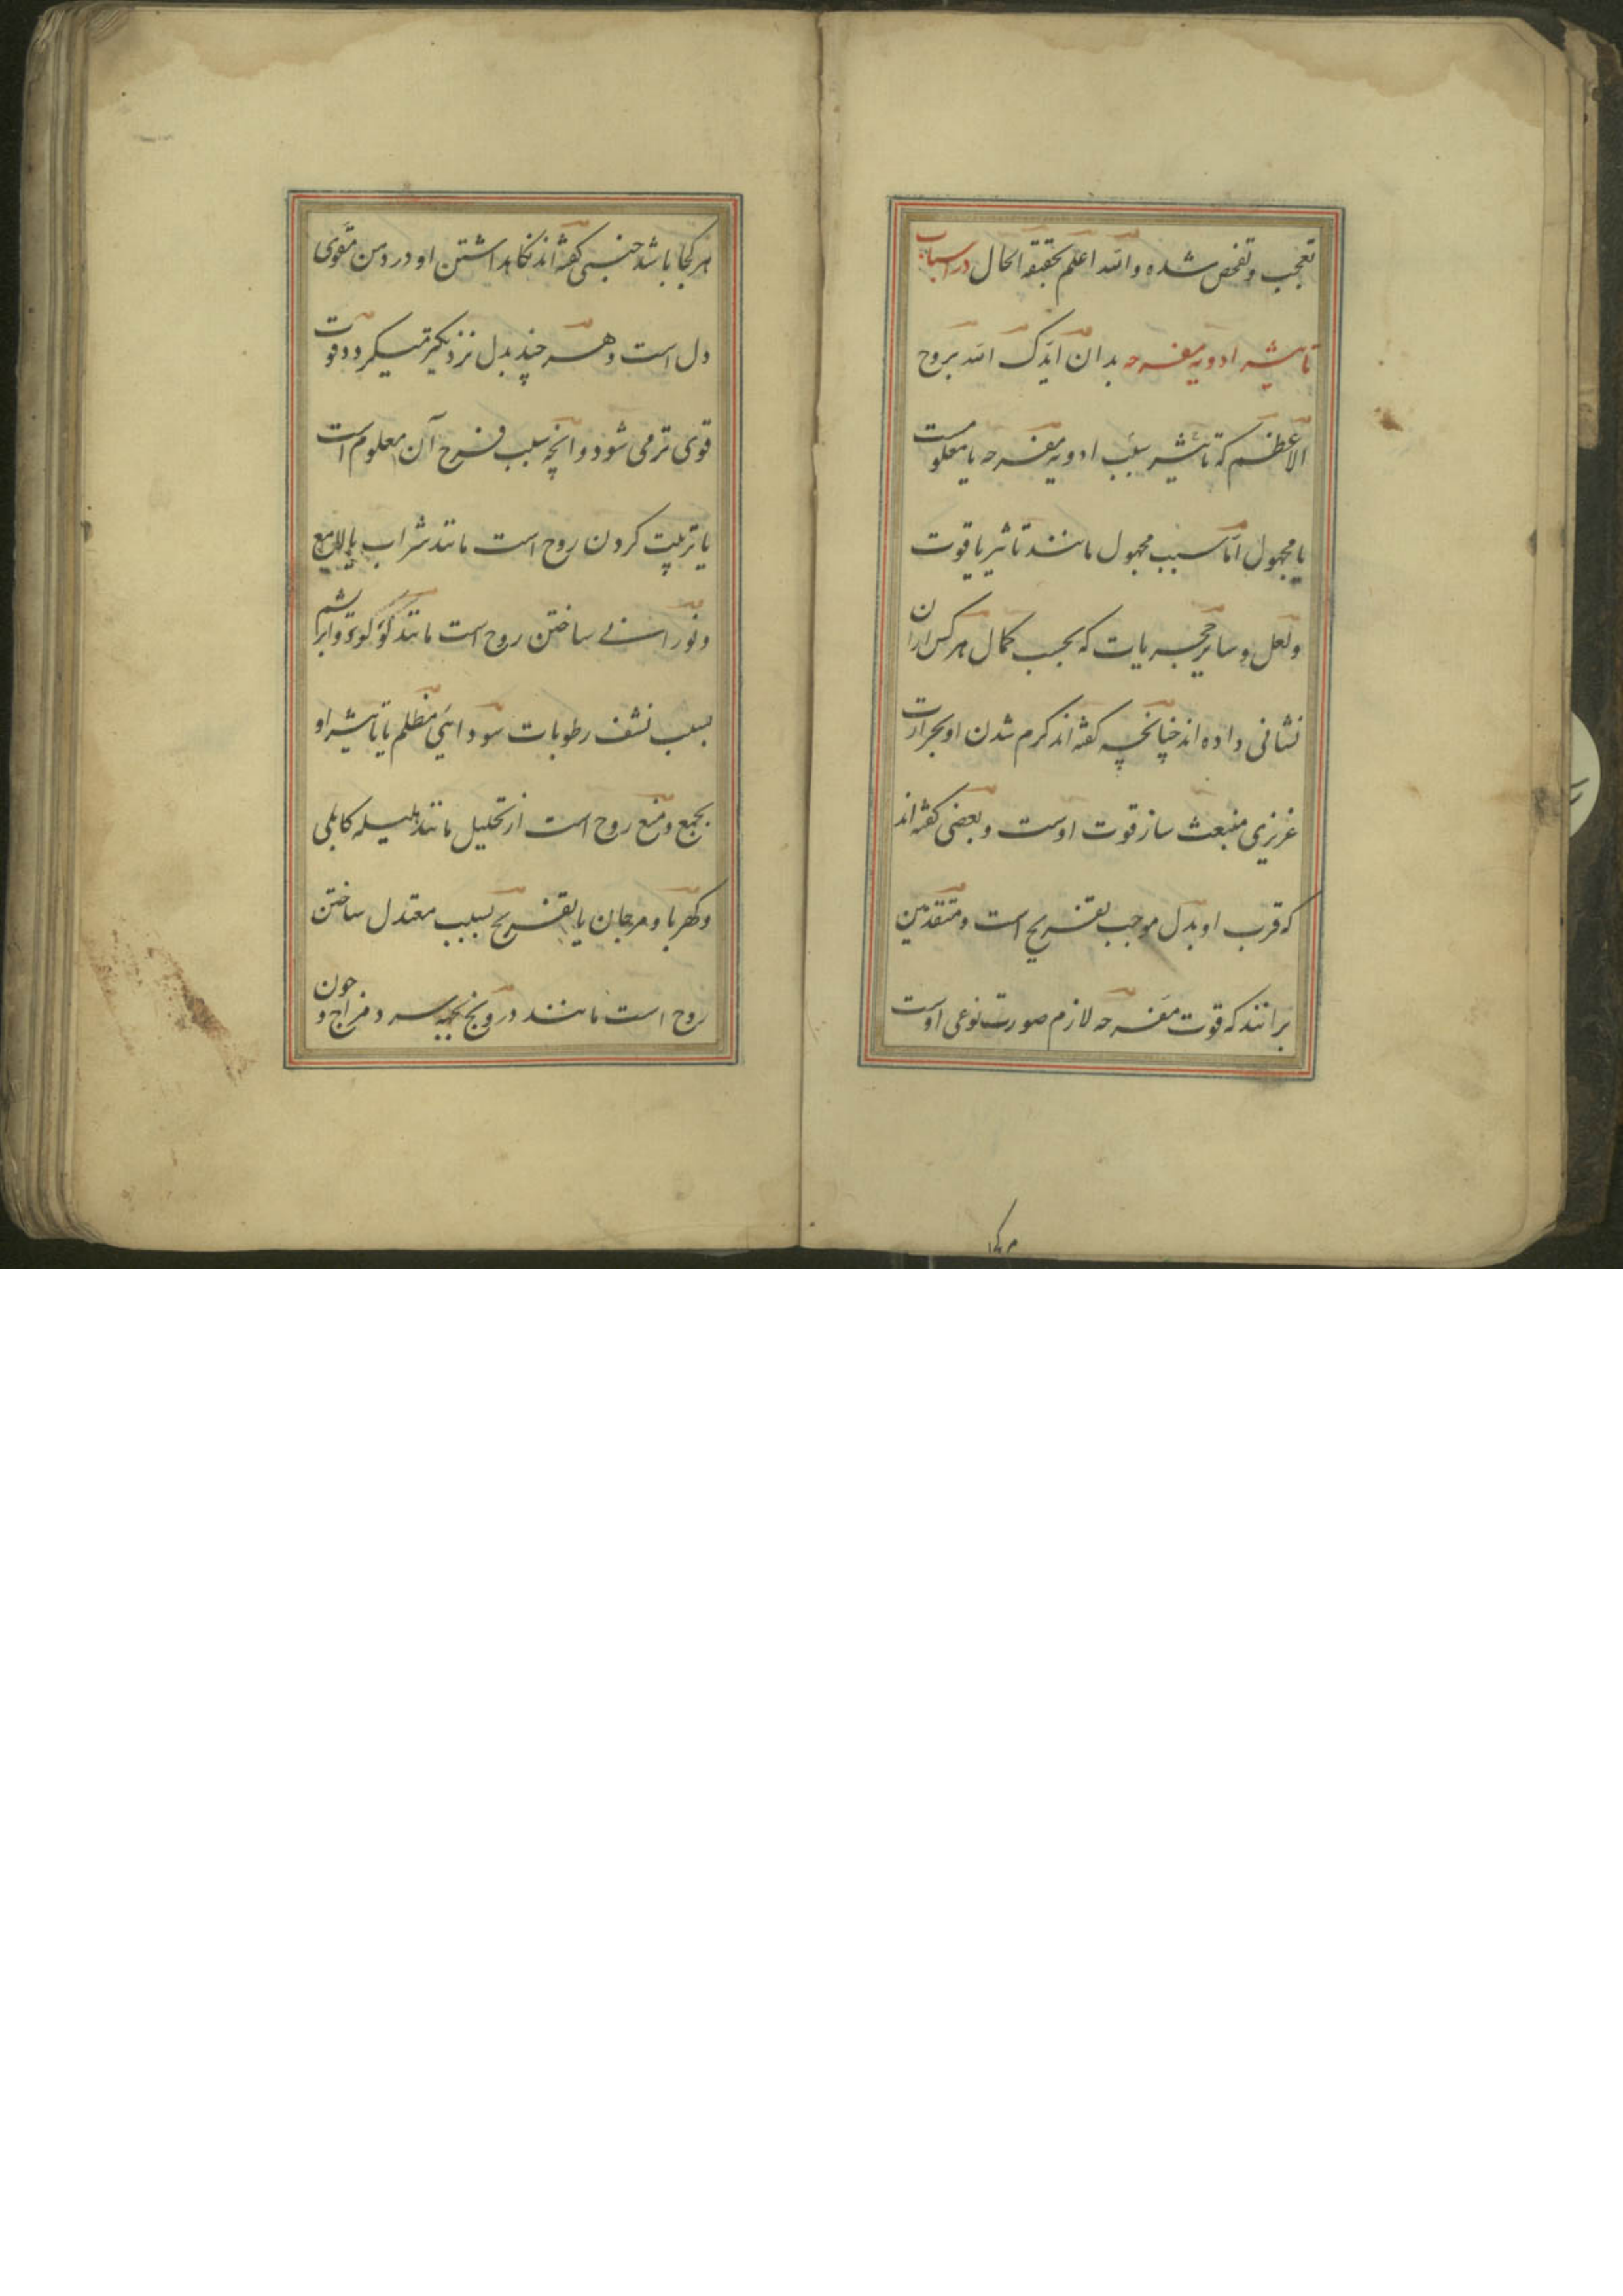 تعجب و تفحص شده والله اعلم بحقیقة الحال در اسباب
تاثیر ادویه مفرحه بدان ایدک الله بروح
الاعظم که تاثیر سبب ادویه مفرحه یا معلومست
یا مجهول اما سبب مجهول مانند تاثیر یاقوت
و لعل و سایر حجریات که بحسب کمال هر کس ازان
نشانی داده اند چنانچه کفته اند کرم شدن او بحرارت
غریزی منبعث ساز قوت اوست و بعضی کفته اند
که قرب او بدل موجب تفریح است و متقدمین
برانند که قوت مفرحه لازم صورت نوعی اوست
هر کجا باشد حتی کفته اند نکاهداشتن او در دهن مقوی
دل است و هر چند بدل نزدیکتر میکردد قوت
قوی تر می شود و آنچه سبب فرح آن معلوم است
یا تربیت کردن روح است مانند شراب یا لامع
و نورانی ساختن روح است مانند لؤلؤ و ابریشم
بسبب نشف رطوبات سوداییء مظلم یا تاثیر او
بجمع و منع روح است از تحلیل مانند هلیله کابلی
و کهربا و مرجان یا تفریح بسبب معتدل ساختن
روح است مانند درونج که سرد مزاج و چون